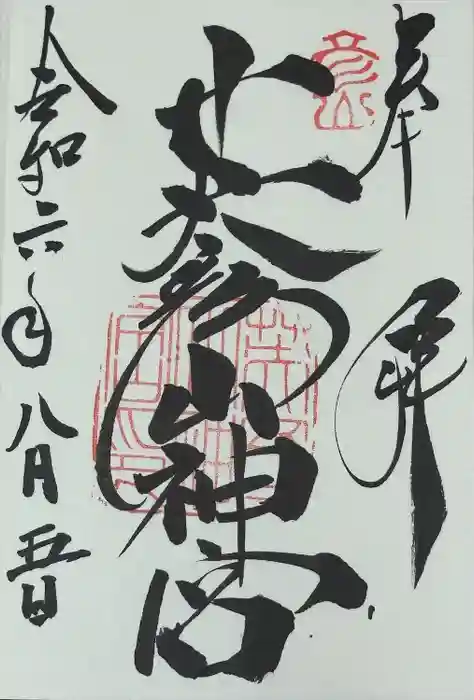 奉拝
英彦山神宮
令和六年八月五日